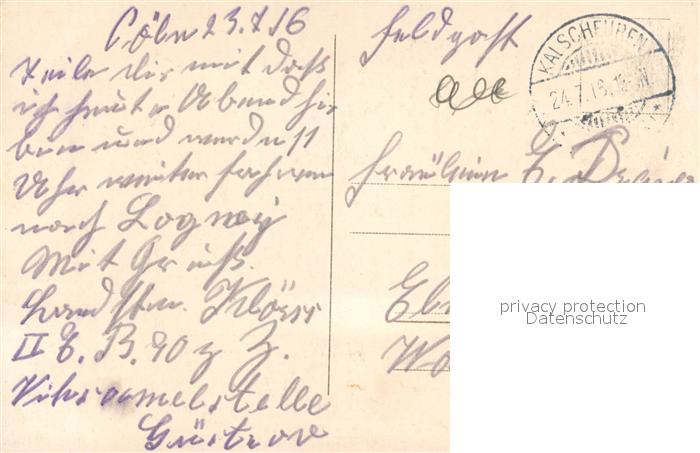 Cöln 23.7.16
Teile dir mit daß
ich heute Abend hir
bin und werde 11
Uhr weiter fahren
nach Longwy
Mit Gruß.
Landstm.
II E. B. 90 z Z.
Güstrow
Feldpost
KALSCHEUREN
24.7.16.
Fräulein E.
privacy protection
Datenschutz